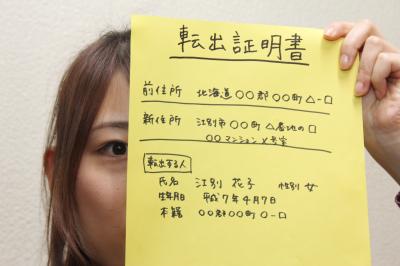 転出証明書
前住所 北海道〇〇郡〇〇町△-口
新住所 江別市〇〇町△番地の口
〇〇マンションX号室
転出する人
氏名 江別 花子 性別 女
生年月日 平成7年4月7日
本籍 〇〇郡〇〇町〇-口